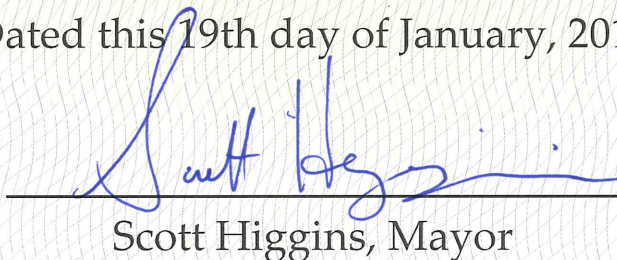 Dated this 19th day of January, 201
Scott Higgins
Scott Higgins, Mayor